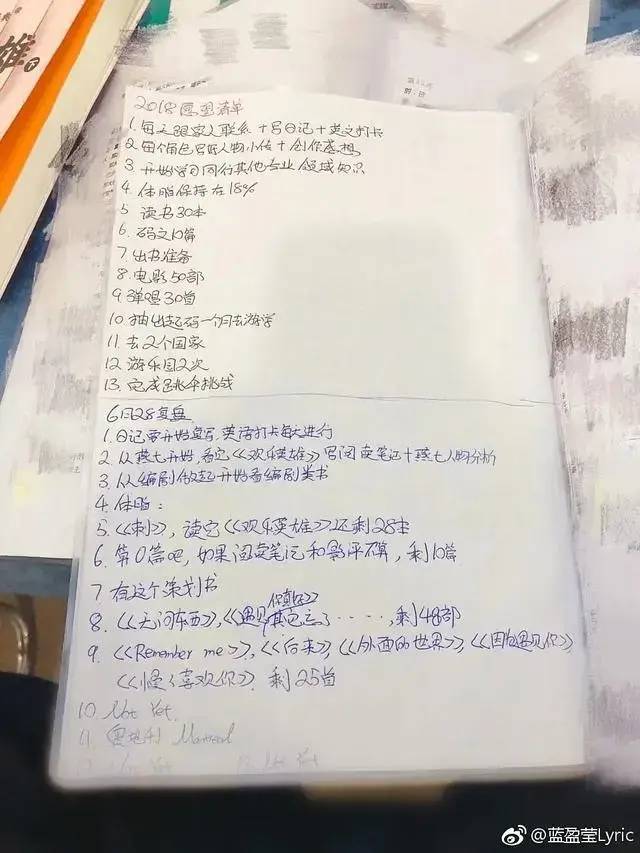 雄
下
2018愿望清单
1. 每天跟家人联系+写日记+英文打卡
2. 每个角色写好人物小传+创作感想
3. 开始学习同行其他专业领域知识
4. 体脂保持在18%
5 读书30本
6. 码文10篇
7. 出书准备
8. 电影50部
9 弹唱30首
10. 抽出起码一个月去游学
11. 去2个国家
12. 游乐园2次
13. 完成跳伞挑战
6月28复盘
1. 日记要开始复写 英语打卡每天进行
2. 从燕七开始,看完《欢乐英雄》写阅读笔记+燕七人物分析
3. 从编剧做起开始看编剧类书
4. 体脂:
5 《刺》,读完《欢乐英雄》还剩28本
6. 第0篇吧,如果阅读笔记和影评不算,剩10篇
7 有这个策划书
8.《无问东西》,《遇见你真好》其它忘了·····,剩48部
9. 《Remember me》,《后来》,《外面的世界》,《因为遇见你》,
《怪你喜欢你》. 剩25首
10. Not Yet.
11.
Not Yet
Not Yet
@蓝盈莹Lyric